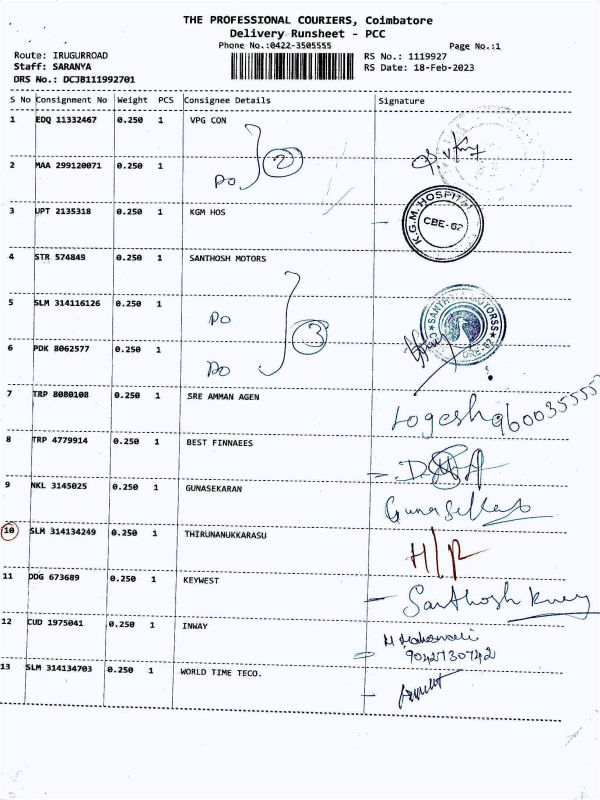 THE PROFESSIONAL COURIERS, Coimbatore
Delivery Runsheet - PCC
Phone No.:0422-3505555 Page No.:1
Route: IRUGURROAD RS No.: 1119927
Staff: SARANYA RS Date: 18-Feb-2023
DRS No.: DCJB111992701
S No Consignment No Weight PCS Consignee Details Signature
1 EDQ 11332467 0.250 1 VPG CON
2
2 MAA 299120071 0.250 1
Do
3 UPT 2135318 0.250 1 KGM HOS
K.G.M. HOSPITAL
CBE-62
4 STR 574849 0.250 1 SANTHOSH MOTORS
5 SLM 314116126 0.250 1
Do
3
6 PDK 8062577 0.250 1
Do
7 TRP 8080108 0.250 1 SRE AMMAN AGEN
Logesh 9600355552
8 TRP 4779914 0.250 1 BEST FINNAEES
9 NKL 3145025 0.250 1 GUNASEKARAN
10 SLM 314134249 0.250 1 THIRUNANUKKARASU
H/R
11 DDG 673689 0.250 1 KEYWEST
Santhosh
12 CUD 1975041 0.250 1 INWAY
9042730742
13 SLM 314134703 0.250 1 WORLD TIME TECO.